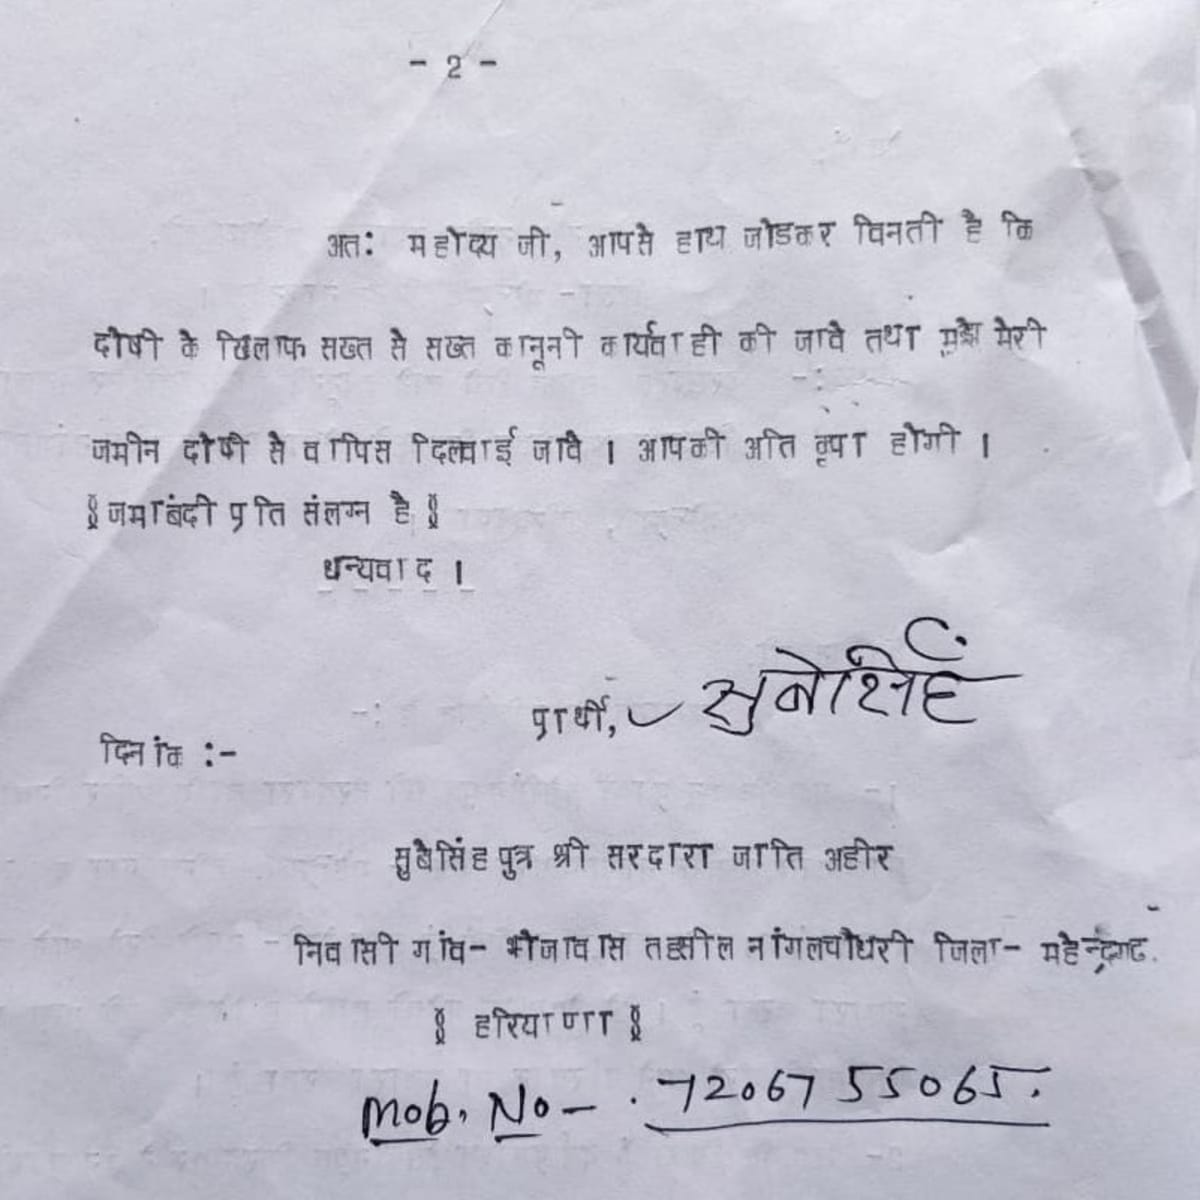 - 2 -
अत: महोदय जी, आपसे हाथ जोडकर विनती है कि
दोषी के खिलाफ सख्त से सख्त कानूनी कार्यवाही की जावे तथा मुझे मेरी
जमीन दोषी से वापिस दिलवाई जावे । आपकी अति कृपा होगी ।
§जमाबंदी प्रति संलग्न है§
धन्यवाद ।
प्रार्थी, सुबेसिंह
दिनांक :-
सुबेसिंह पुत्र श्री सरदारा जाति अहीर
निवासी गांव- भोजावास तहसील नांगलचौधरी जिला- महेन्द्रगढ.
§ हरियाणा §
Mob. No - . 7206755065.